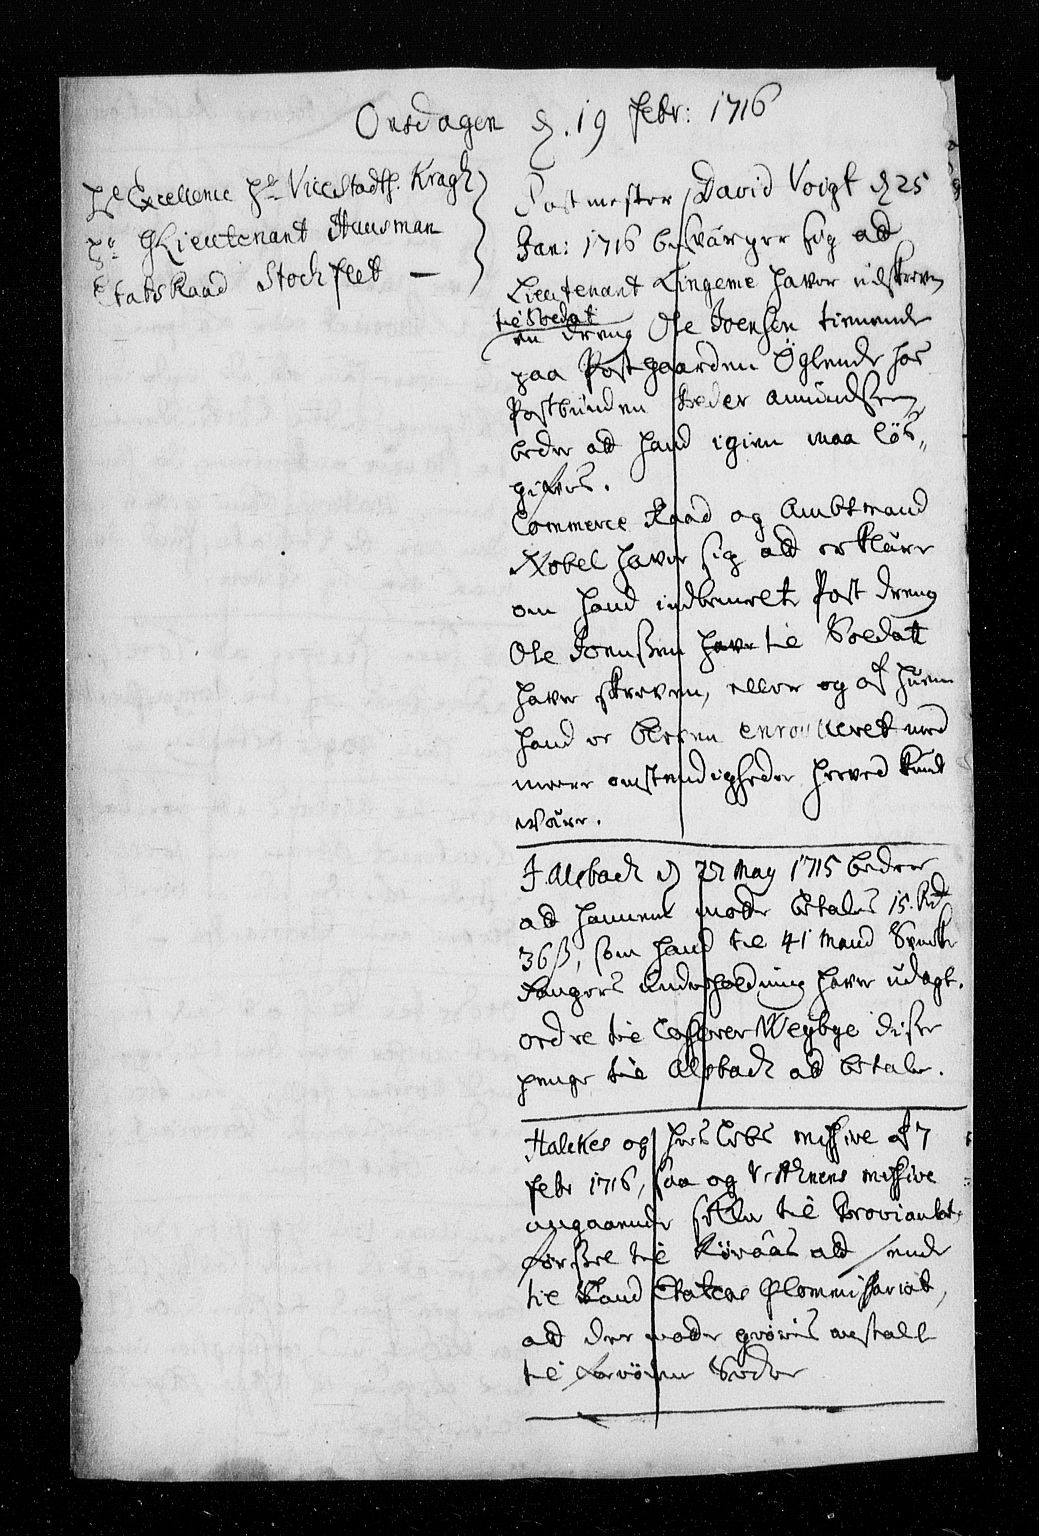 Onsdagen d. 19 Febr: 1716
Hs Excellence Hr ViceStadth. Kragh
Hr GLieutenant Hausman
EtatsRaad Stockflet —
Postmester David Voigt d 25
Jan: 1716 besværger sig att
Lieutenant Lingeme haver udskreven
til Soldat
en dreng Ole Joensen tienende
paa Postgaarden Öglende hos
Postbunden Peder Amundsen,
beder att hand igien maa løs,,
gifves.
Commerce Raad og Ambtmand
Nobel haver sig att erklære
om hand indbemelte Post dreng
Ole Joensøn have til Soldatt
haver skreven, eller og af huem
hand er bleven enroulleret med
meere omstendigheder herved kand
være.
J Alsback d 22 May 1715 beder
att hannem motte betales 15. Rdr
36 ß, som hand til 41 Mand Svenske
Fangers Underholdning haver udlagt.
ordre til Casserer Weybye disse
penge til Alsback att betale.
Halckes og hans missive af 7
Febr 1716, saa og missive
angaaende till Proviant,
førsel til Röraas att sende
til Land Etatens GCommissariat,
att der motte giøris anstalt
til